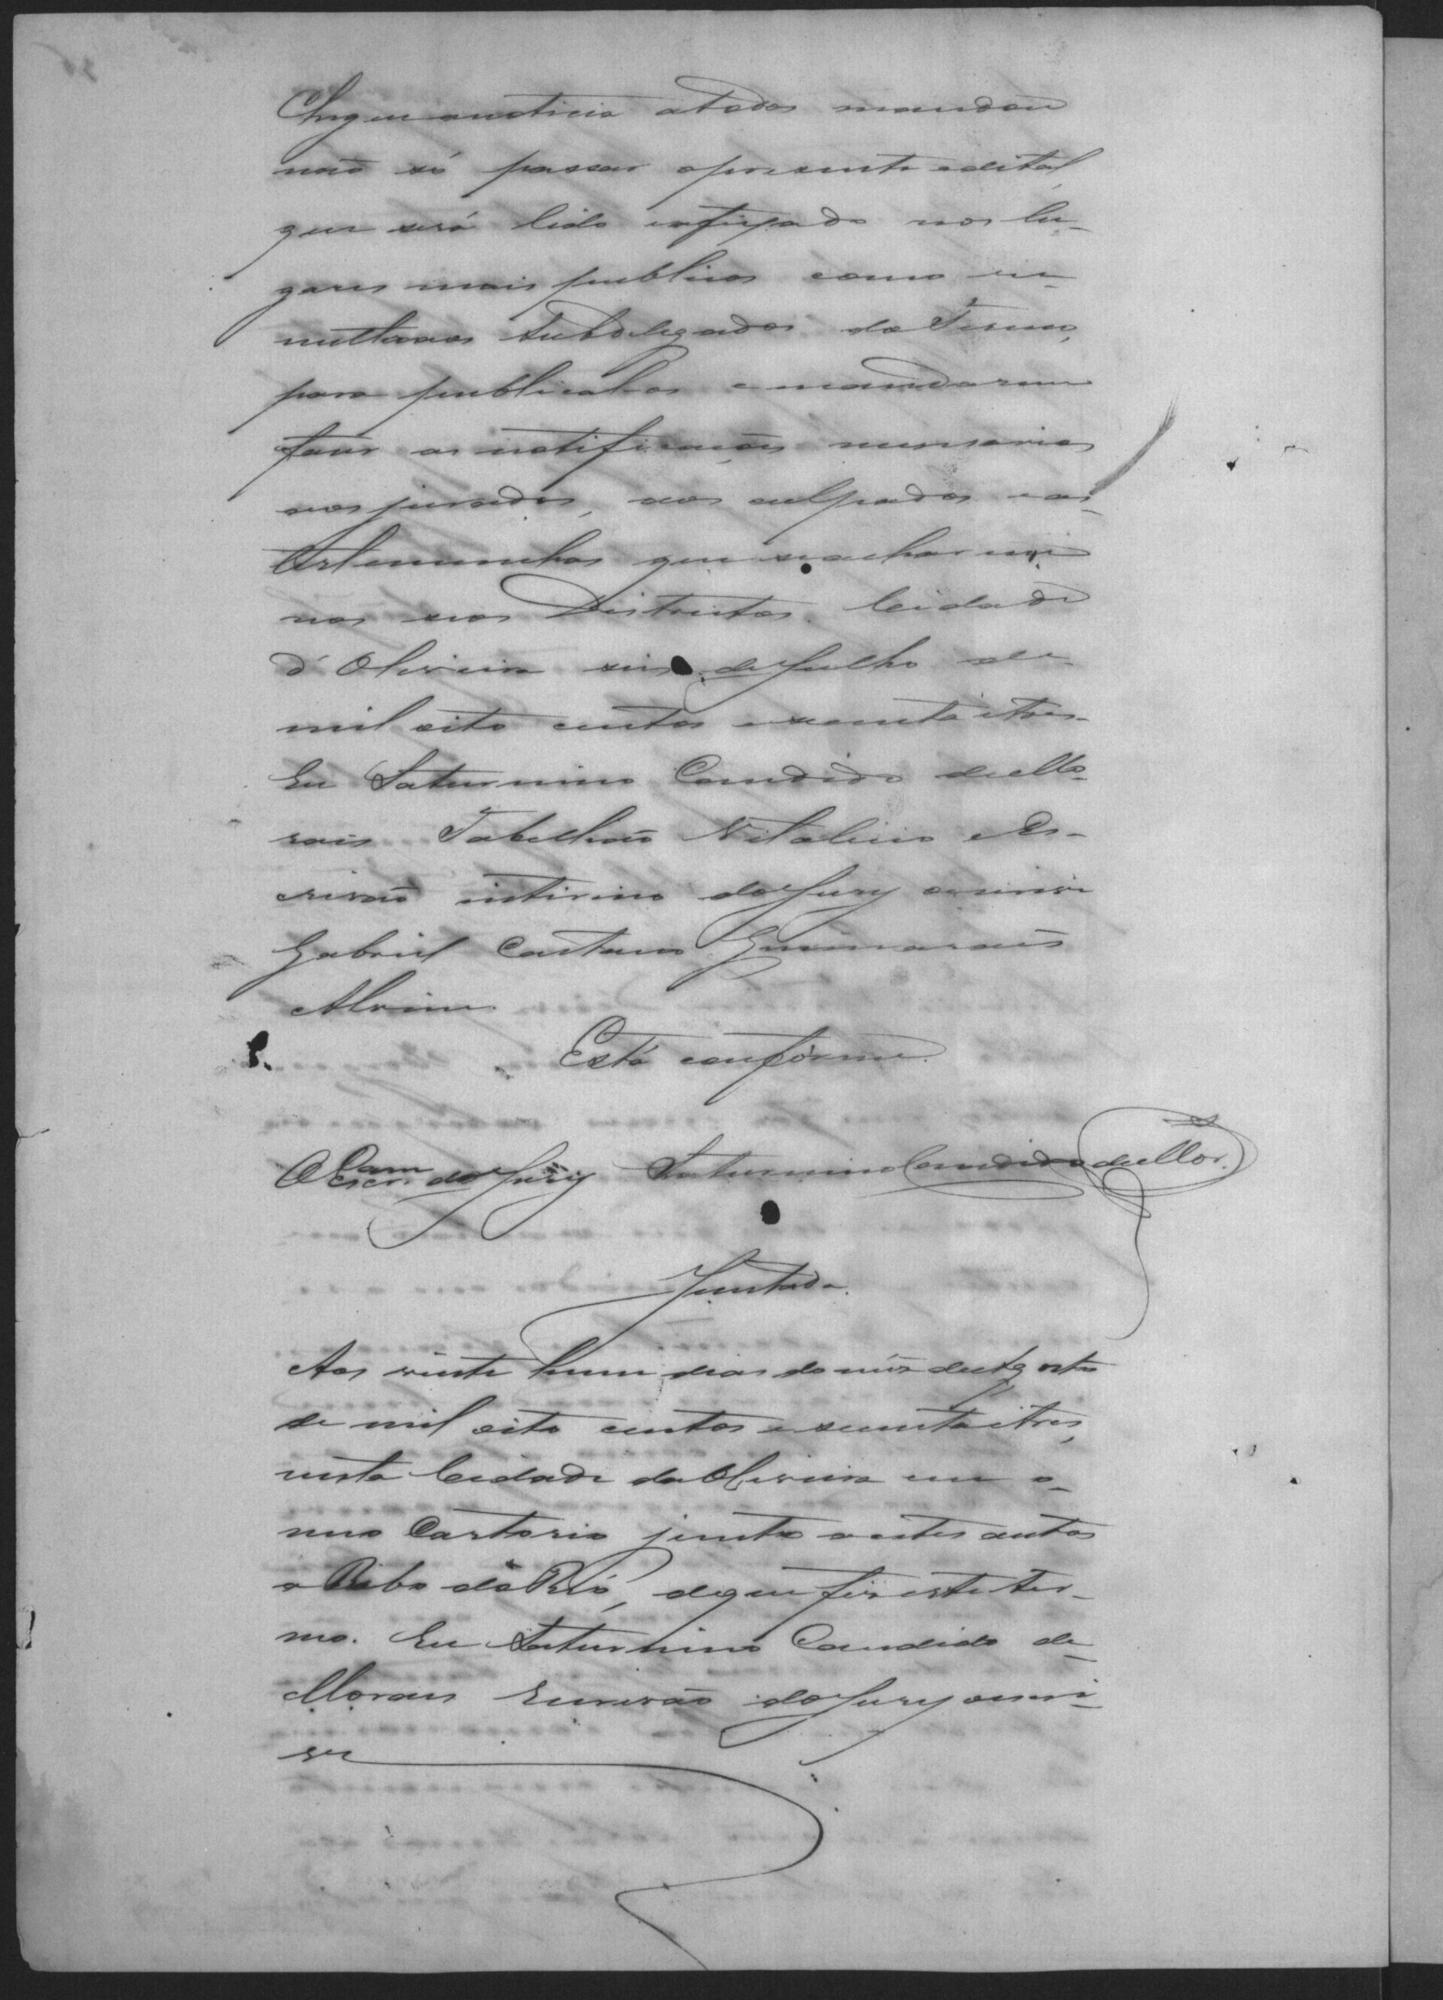 Chegue a noticia a todos mandou
não só passar o presente edital,
que será lido e afixado nos lu-
gares mais publicos como re-
mettidos Subdelegados do Termo,
para publical-os e mandarem
fazer as notificações necessarias
aos jurados, aos culpados e as
testemunhas que se acharem
nos seos Districtos. Cidade
d'Oliveira seis de Julho de
mil oito centos e secenta e tres.
Eu Saturnino Candido de Mo-
raes Tabellião Vitalicio e Es-
crivão interino do Jury escrevi
Gabriel Caetano Guimaraes
Alvim
Está conforme.
O Escr.am do Jury Saturnino Candido de Mor.
Juntada.
Aos vinte hum dias do mez de Agosto
de mil oito centos e secenta e tres,
nesta Cidade da Oliveira em o
meo Cartorio junto a estes autos
o Recibo do Réo, de que fiz este ter-
mo. Eu Saturnino Candido de
Moraes Escrivão do Jury escre-
vi